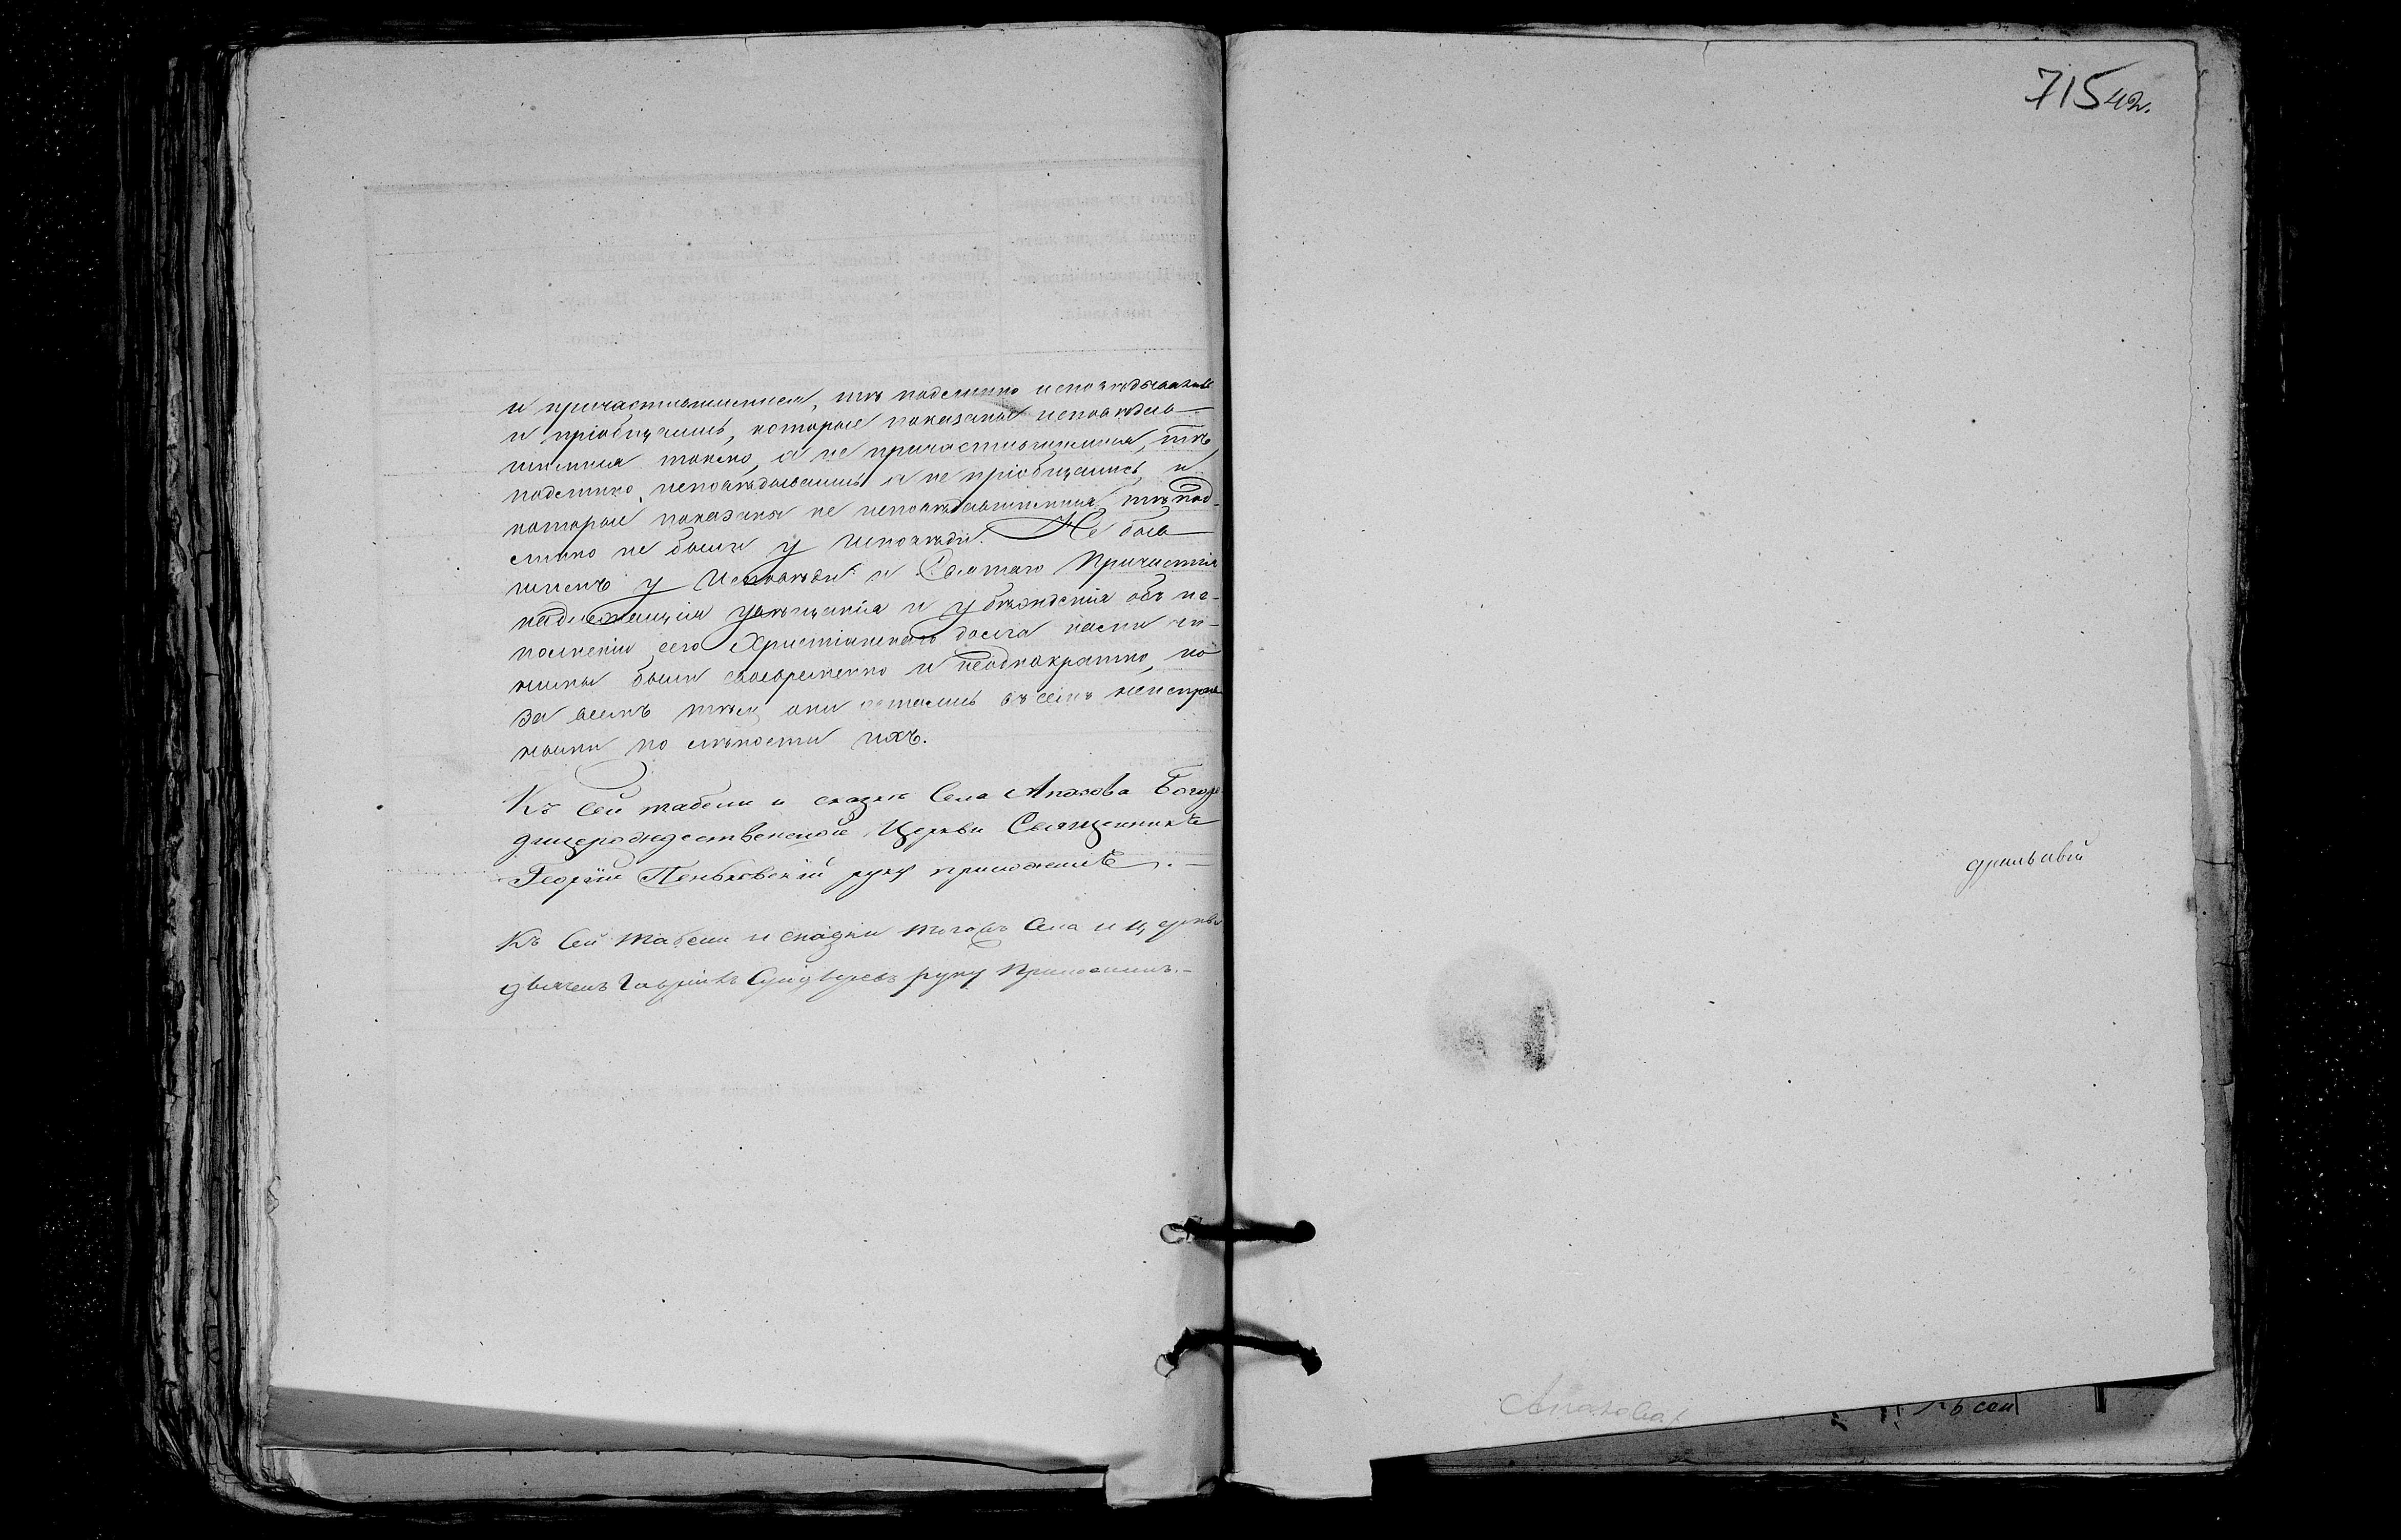 и причастившимися, тѣ подлинно исповѣдывались
и пріобщались, которые показаны исповѣдав
шимися токмо, а не причастившимися, тѣ
подлинно исповѣдывались а не пріобщались, и
которые показаны не исповѣдавшимися, тѣ под-
линно не были у исповѣди. Не быв
шимъ у Исповѣди и Святаго Причастія
надлежащія увѣщанія и убѣжденія объ ис-
полненіи сего Христіанскаго долга нами чи-
нимы были своевременно и неоднократно, но
за всѣмъ тѣмъ они остались въ семъ неисправ
ными по слѣпости ихъ.
Къ сей табели и сказкѣ Села Апахова Богоро
дицерождественской Церкви Священникъ
Георгій Пеньковскій руку приложилъ. —
Къ сей табели и сказки того жъ села и церкви
дьячекъ Гавріилъ руку приложилъ. —
715 42.